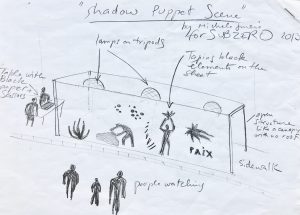 "Shadow Puppet Scene"
for SUBZERO
lamps on tripods
Taping black
elements on the
sheet
Table with
black
paper
open
structure
like a canopy
with no roof
PAIX
sidewalk
people watching